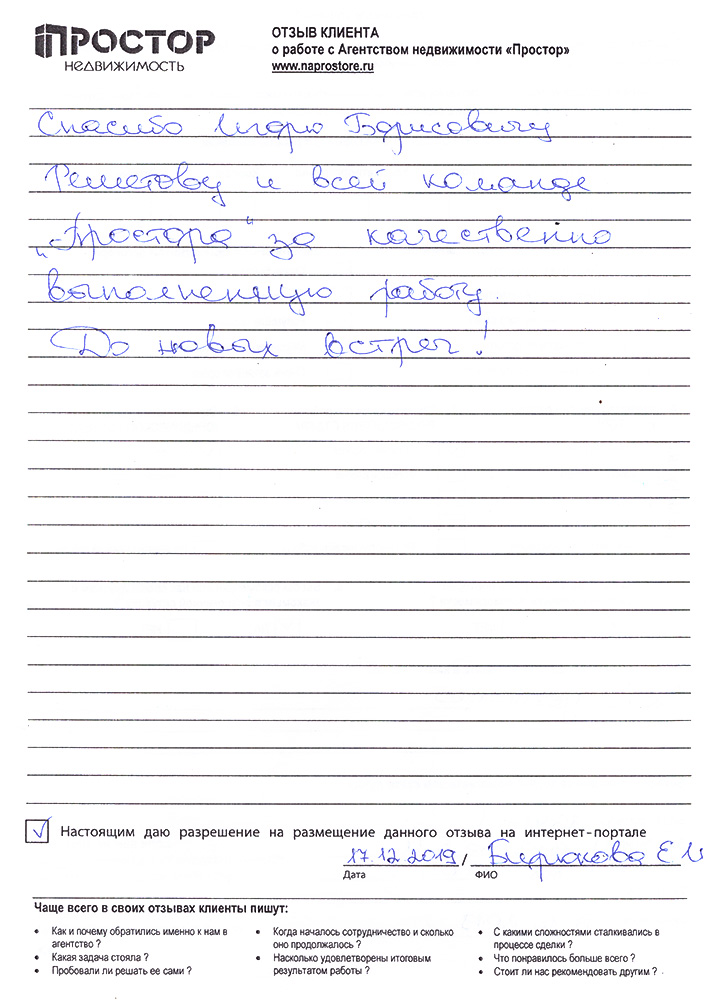 ПРОСТОР
НЕДВИЖИМОСТЬ
ОТЗЫВ КЛИЕНТА
о работе с Агентством недвижимости «Простор»
www.naprostore.ru
Спасибо Игорю Борисовичу
Решетову и всей команде
„Простора" за качественно
выполненную работу.
До новых встреч!
Настоящим даю разрешение на размещение данного отзыва на интернет-портале
17.12.2019 / Бирюкова Е И
Дата ФИО
Чаще всего в своих отзывах клиенты пишут:
• Как и почему обратились именно к нам в
агентство ?
• Какая задача стояла ?
• Пробовали ли решать ее сами ?
• Когда началось сотрудничество и сколько
оно продолжалось ?
• Насколько удовлетворены итоговым
результатом работы ?
• С какими сложностями сталкивались в
процессе сделки ?
• Что понравилось больше всего ?
• Стоит ли нас рекомендовать другим ?